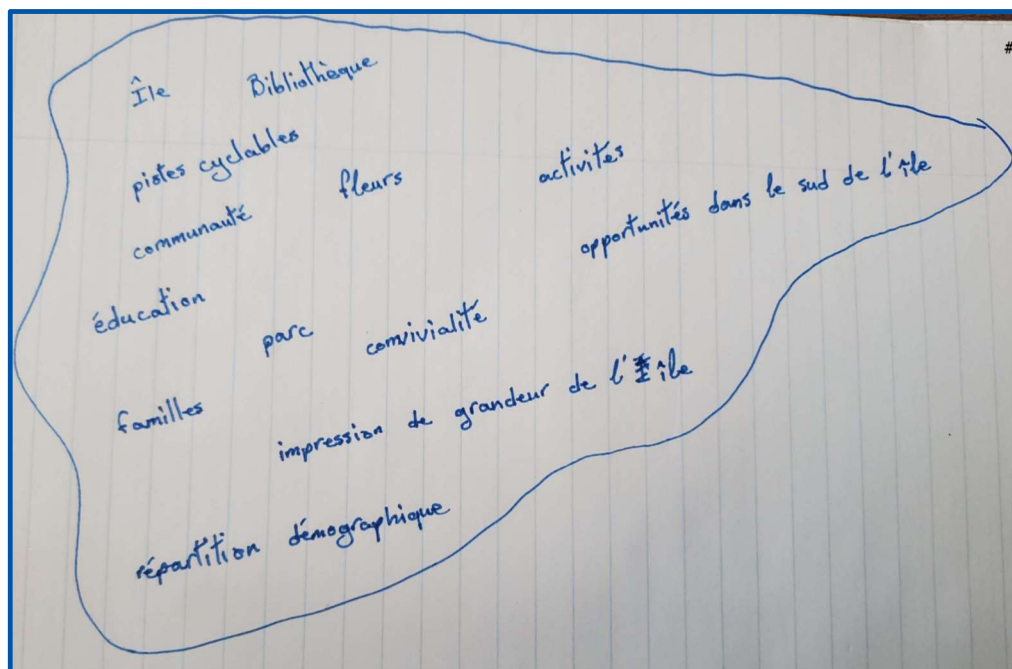 #
Île Bibliothèque
pistes cyclables
fleurs
activités
communauté
opportunités dans le sud de l'île
éducation
parc
convivialité
familles
impression de grandeur de l'île
répartition démographique